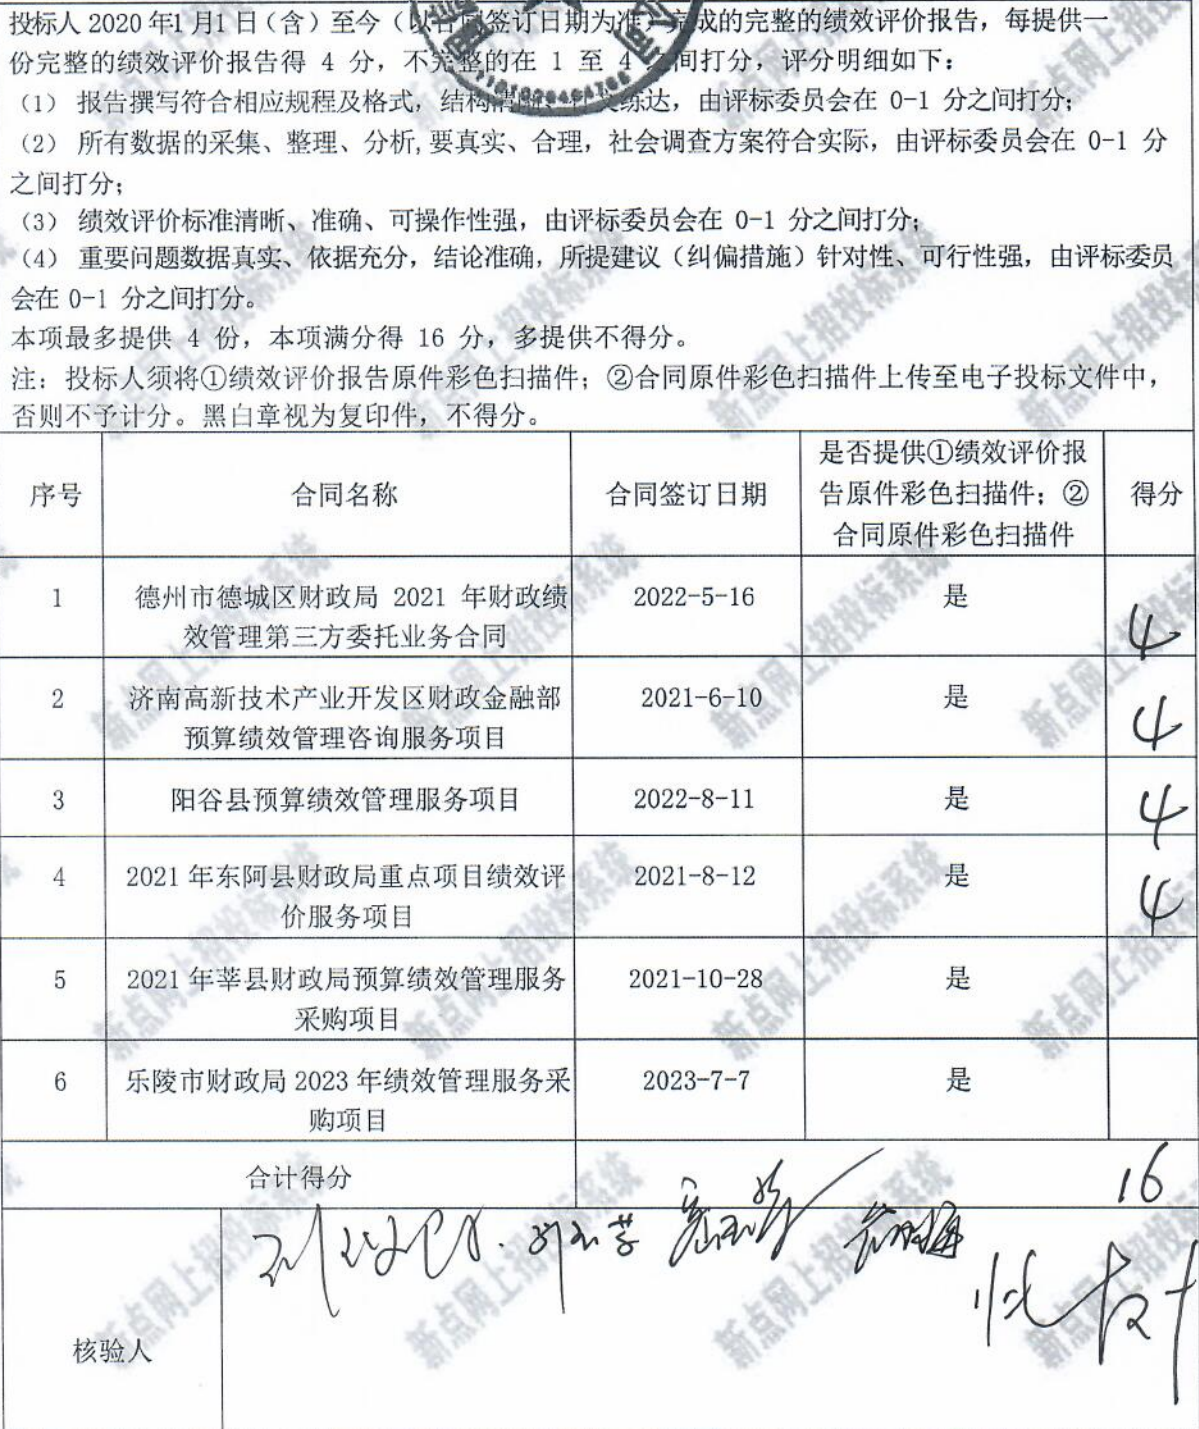 投标人 2020 年1月1日（含）至今（以合同签订日期为准）完成的完整的绩效评价报告，每提供一
份完整的绩效评价报告得 4 分，不完整的在 1 至 4 之间打分，评分明细如下：
（1） 报告撰写符合相应规程及格式，结构清晰、行文练达，由评标委员会在 0-1 分之间打分；
（2） 所有数据的采集、整理、分析,要真实、合理，社会调查方案符合实际，由评标委员会在 0-1 分
之间打分；
（3） 绩效评价标准清晰、准确、可操作性强，由评标委员会在 0-1 分之间打分；
（4） 重要问题数据真实、依据充分，结论准确，所提建议（纠偏措施）针对性、可行性强，由评标委员
会在 0-1 分之间打分。
本项最多提供 4 份，本项满分得 16 分，多提供不得分。
注：投标人须将①绩效评价报告原件彩色扫描件；②合同原件彩色扫描件上传至电子投标文件中，
否则不予计分。黑白章视为复印件，不得分。
序号 合同名称 合同签订日期 是否提供①绩效评价报告原件彩色扫描件；②合同原件彩色扫描件 得分
1 德州市德城区财政局 2021 年财政绩效管理第三方委托业务合同 2022-5-16 是 4
2 济南高新技术产业开发区财政金融部预算绩效管理咨询服务项目 2021-6-10 是 4
3 阳谷县预算绩效管理服务项目 2022-8-11 是 4
4 2021 年东阿县财政局重点项目绩效评价服务项目 2021-8-12 是 4
5 2021 年莘县财政局预算绩效管理服务采购项目 2021-10-28 是
6 乐陵市财政局 2023 年绩效管理服务采购项目 2023-7-7 是
合计得分 16
核验人
新点网上招投标系统